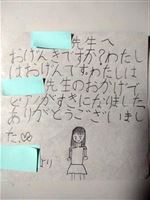 先生へ
おげんきですか?わたし
はおけんです。わたしは
先生のおかげで
ピアノがすきになりました。
ありがとうございまし
た。
より